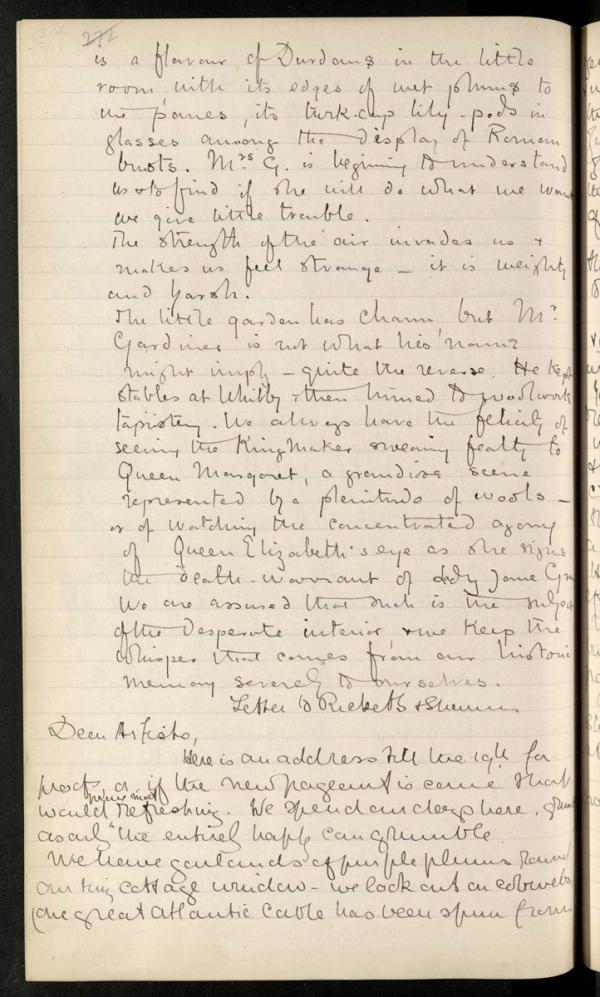 272
is a flavour of Durdans in the little
room with its edges of wet plums to
the panes, its turk-cap lily-pods in
glasses among the display of Roman
busts. Mrs G. is begining to understand
us & to find if she will do what we want
we give little trouble.
The strength of the air invades us &
makes us feel strange – it is weighty
and harsh.
The little garden has charm but Mr.
Gardiner is not what his name
might imply – quite the reverse. He kept
stables at Whitby & then turned to woolwork
tapistry. We always have the felicity of
seeing the KingMaker swearing fealty to
Queen Margaret, a grandiose scene
represented by a plenitude of wools –
or of watching the concentrated agony
of Queen Elizabeth's eye as she signs
the death-warrant of Lady Jane Grey
We are assured that such is the subject
of the desperate interior & we keep the
whisper that comes from our historic
memory severely to ourselves.
Letter to Ricketts & Shannon
Dear Artists,
Here is an address till the 19th for
proofs, or if the new pageant is come that
would be refreshing. We spend our days here,
as only the entirely happy can grumble
We have garlands of purple plums round
our tiny cottage window – we look out on cobwebs
(one great Atlantic Cable has been spun from